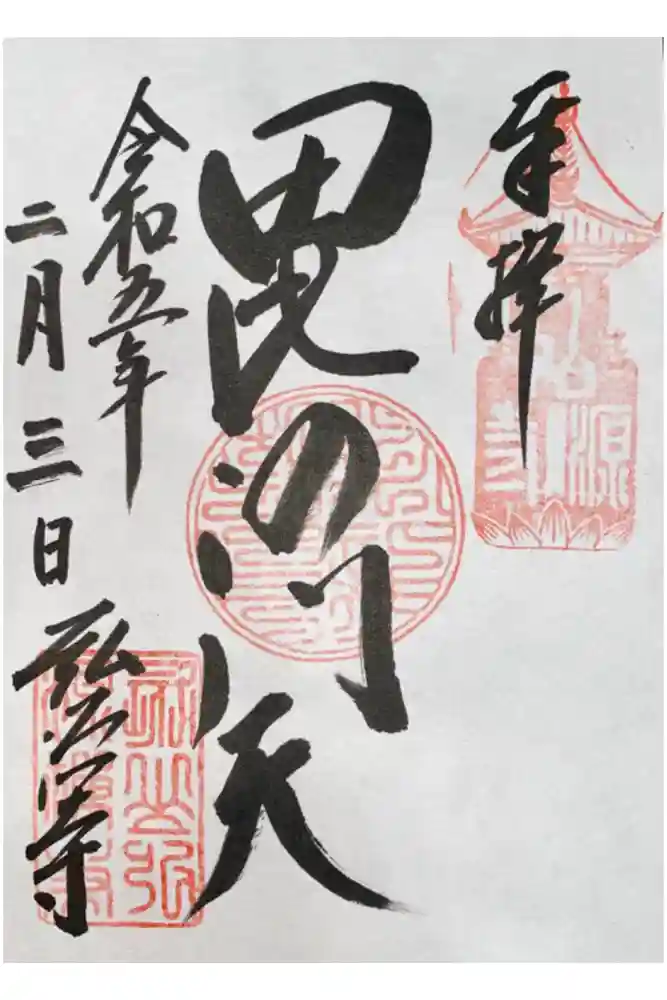 奉拝
毘沙門天
令和五年
二月三日
弘源寺